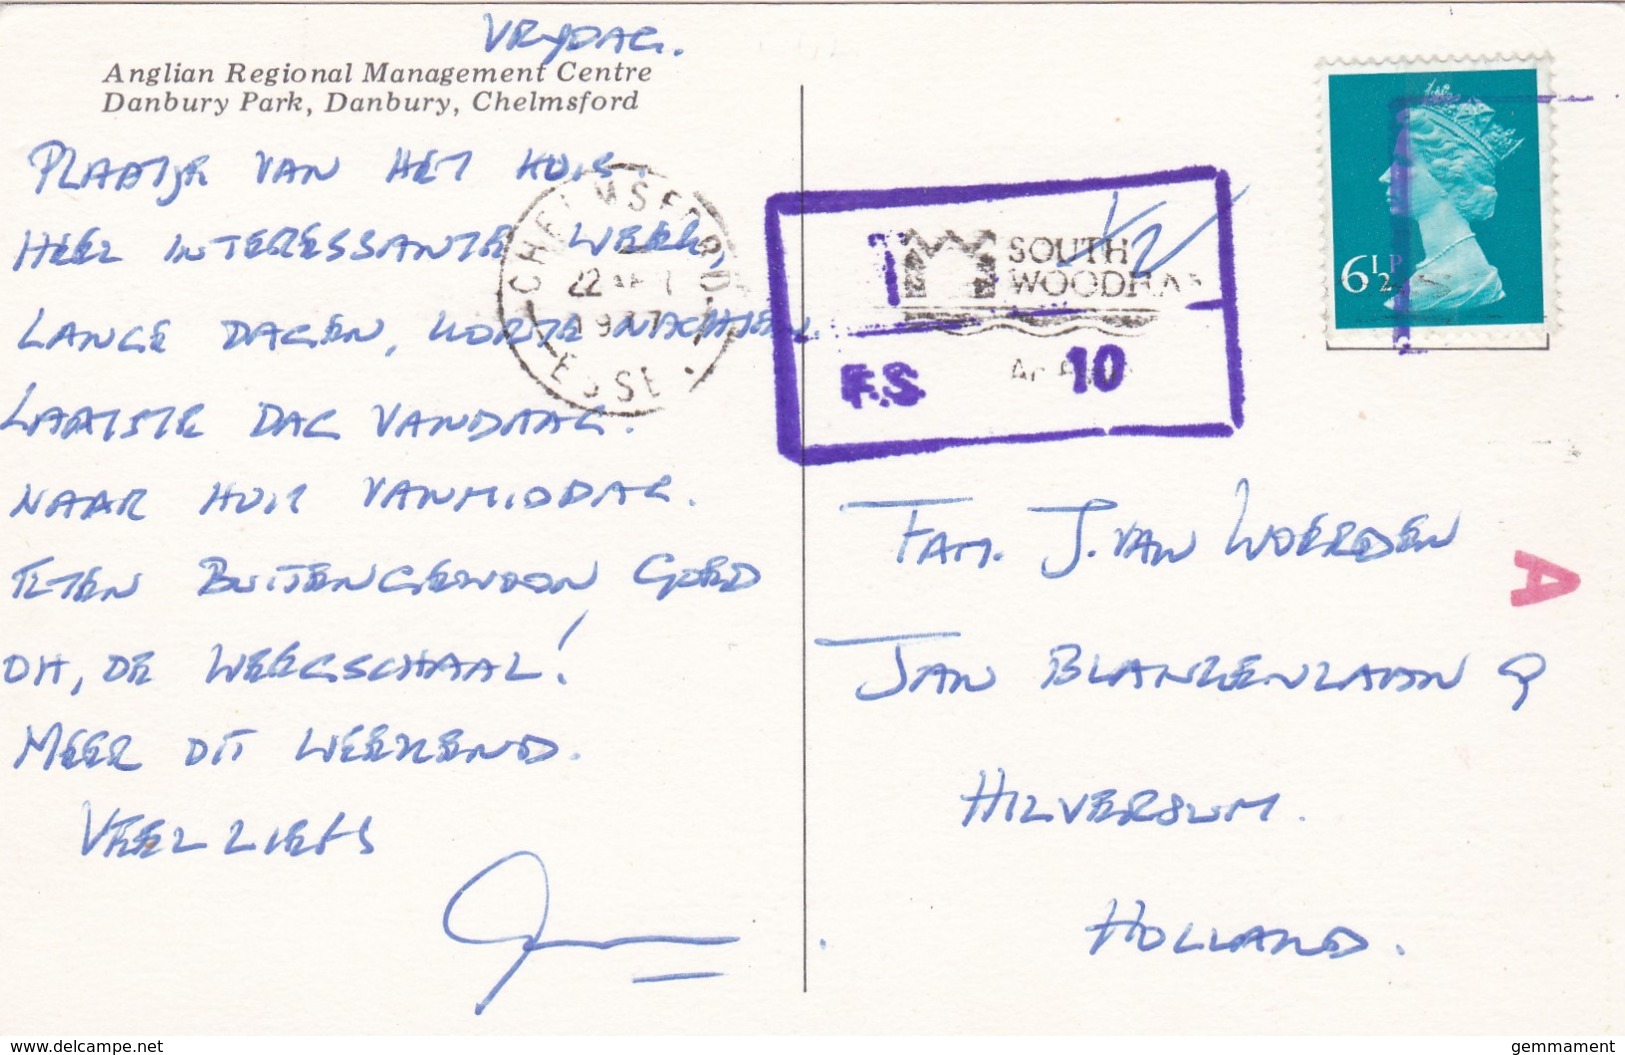 VRYDAG.
Anglian Regional Management Centre
Danbury Park, Danbury, Chelmsford
PLAATJE VAN HET HUIS.
HEEL INTERESSANTE WEEK,
LANGE DAGEN, KORTE NACHTEN.
LAATSTE DAG VANDAAG.
NAAR HUIS VANMIDDAG.
ETEN BUITENGEWOON GOED
OH, DE WEEGSCHAAL!
MEER DIT WEEKEND.
VEEL LIEFS
CHELMSFORD
22 AP
ESSE
SOUTH
WOODHA
F.S. 10
6½P
FAM. J. VAN WOERDEN
A
JAN BLANKENLAAN 9
HILVERSUM.
HOLLAND.
www.delcampe.net
gemmament